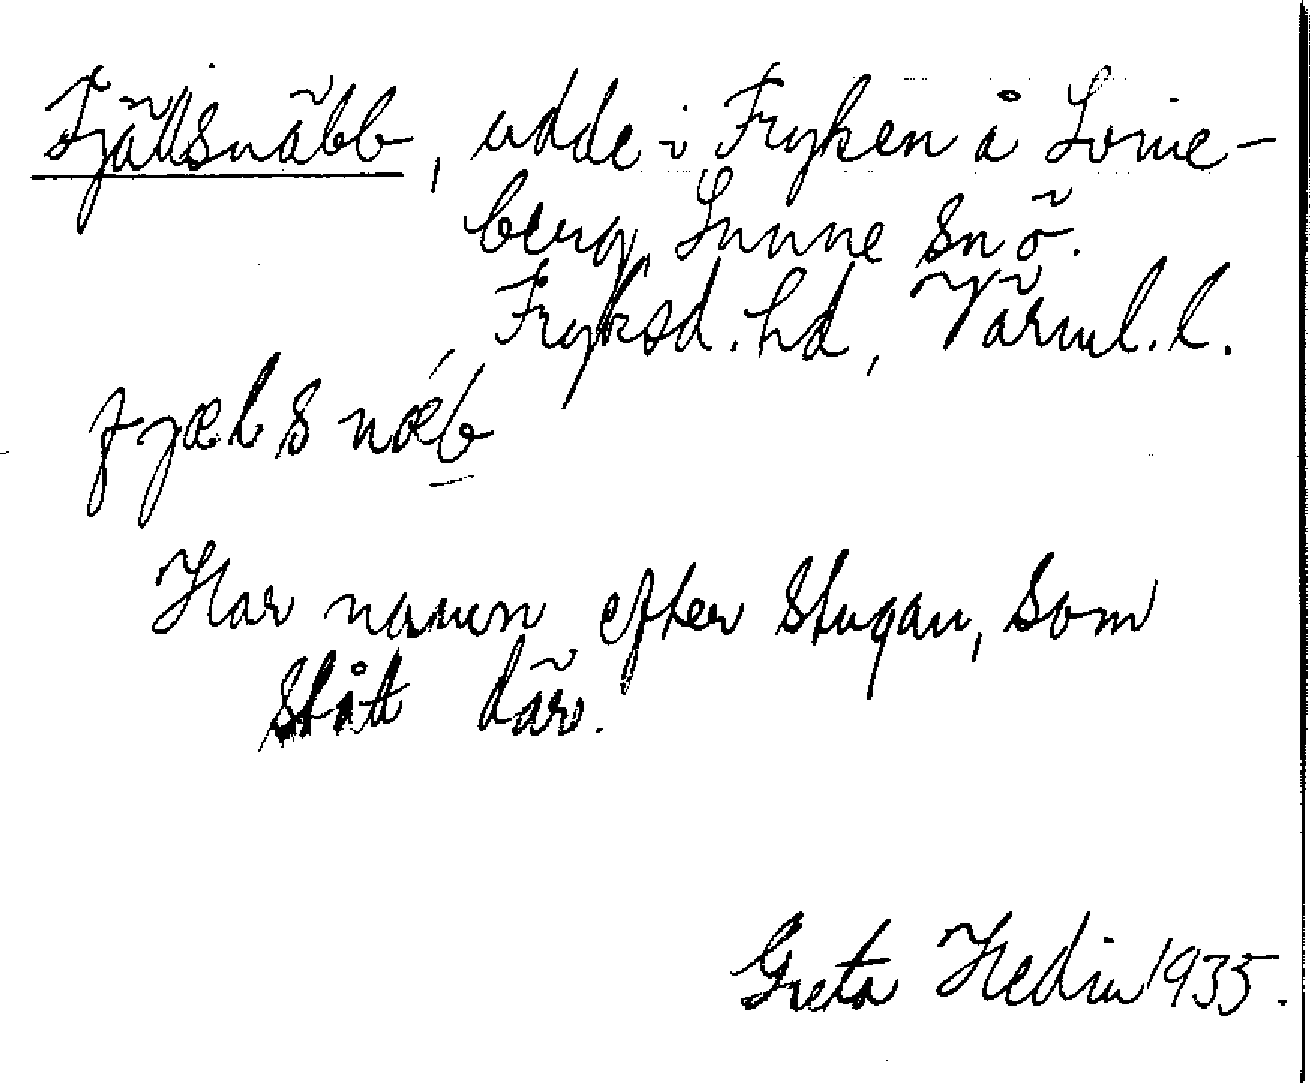 Fjällsnäbb, udde i Fryken å Lovie-
berg Sunne snö.
Fryksd. hd, Värml. l.
fjælsnæ´b
Har namn efter stugan, som
stått där.
Greta Hedin 1935.